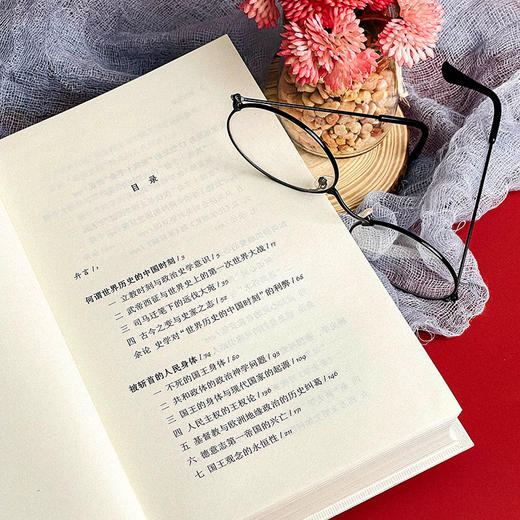 目 录
弁言 / 1
何谓世界历史的中国时刻 / 3
一 立教时刻与政治史学意识 / 5
二 武帝西征与世界史上的第一次世界大战 / 17
三 司马迁笔下的远伐大宛 / 35
四 古今之变与史家之志
余论 史学对“世界历史的中国时刻”的利弊 / 65
被斩首的人民身体 / 74
一 不死的国王身体 / 80
二 共和政体的政治神学问题 / 92
三 国王的身体与现代国家的起源 / 109
四 人民主权的王权论 / 126
五 基督教与欧洲地缘政治的历史纠葛 / 146
六 德意志第一帝国的兴亡 / 171
七 国王观念的永恒性 / 211